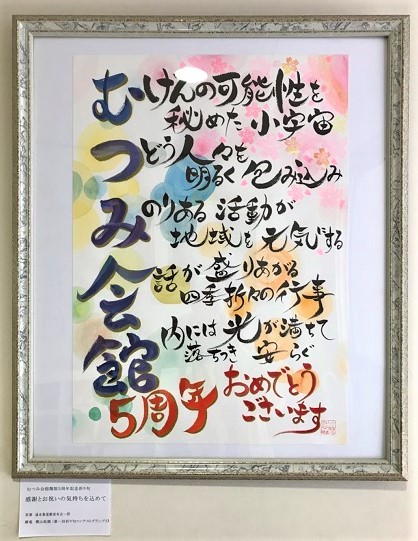 むげんの可能性を
秘めた小宇宙
つどう人々を
明るく包み込み
みのりある活動が
地域を元気にする
会話が盛りあがる
四季折々の行事
館内には光が満ちて
落ちつき安らぐ
5周年おめでとう
ございます
むつみ会館開館5周年記念折り句
感謝とお祝いの気持ちを込めて